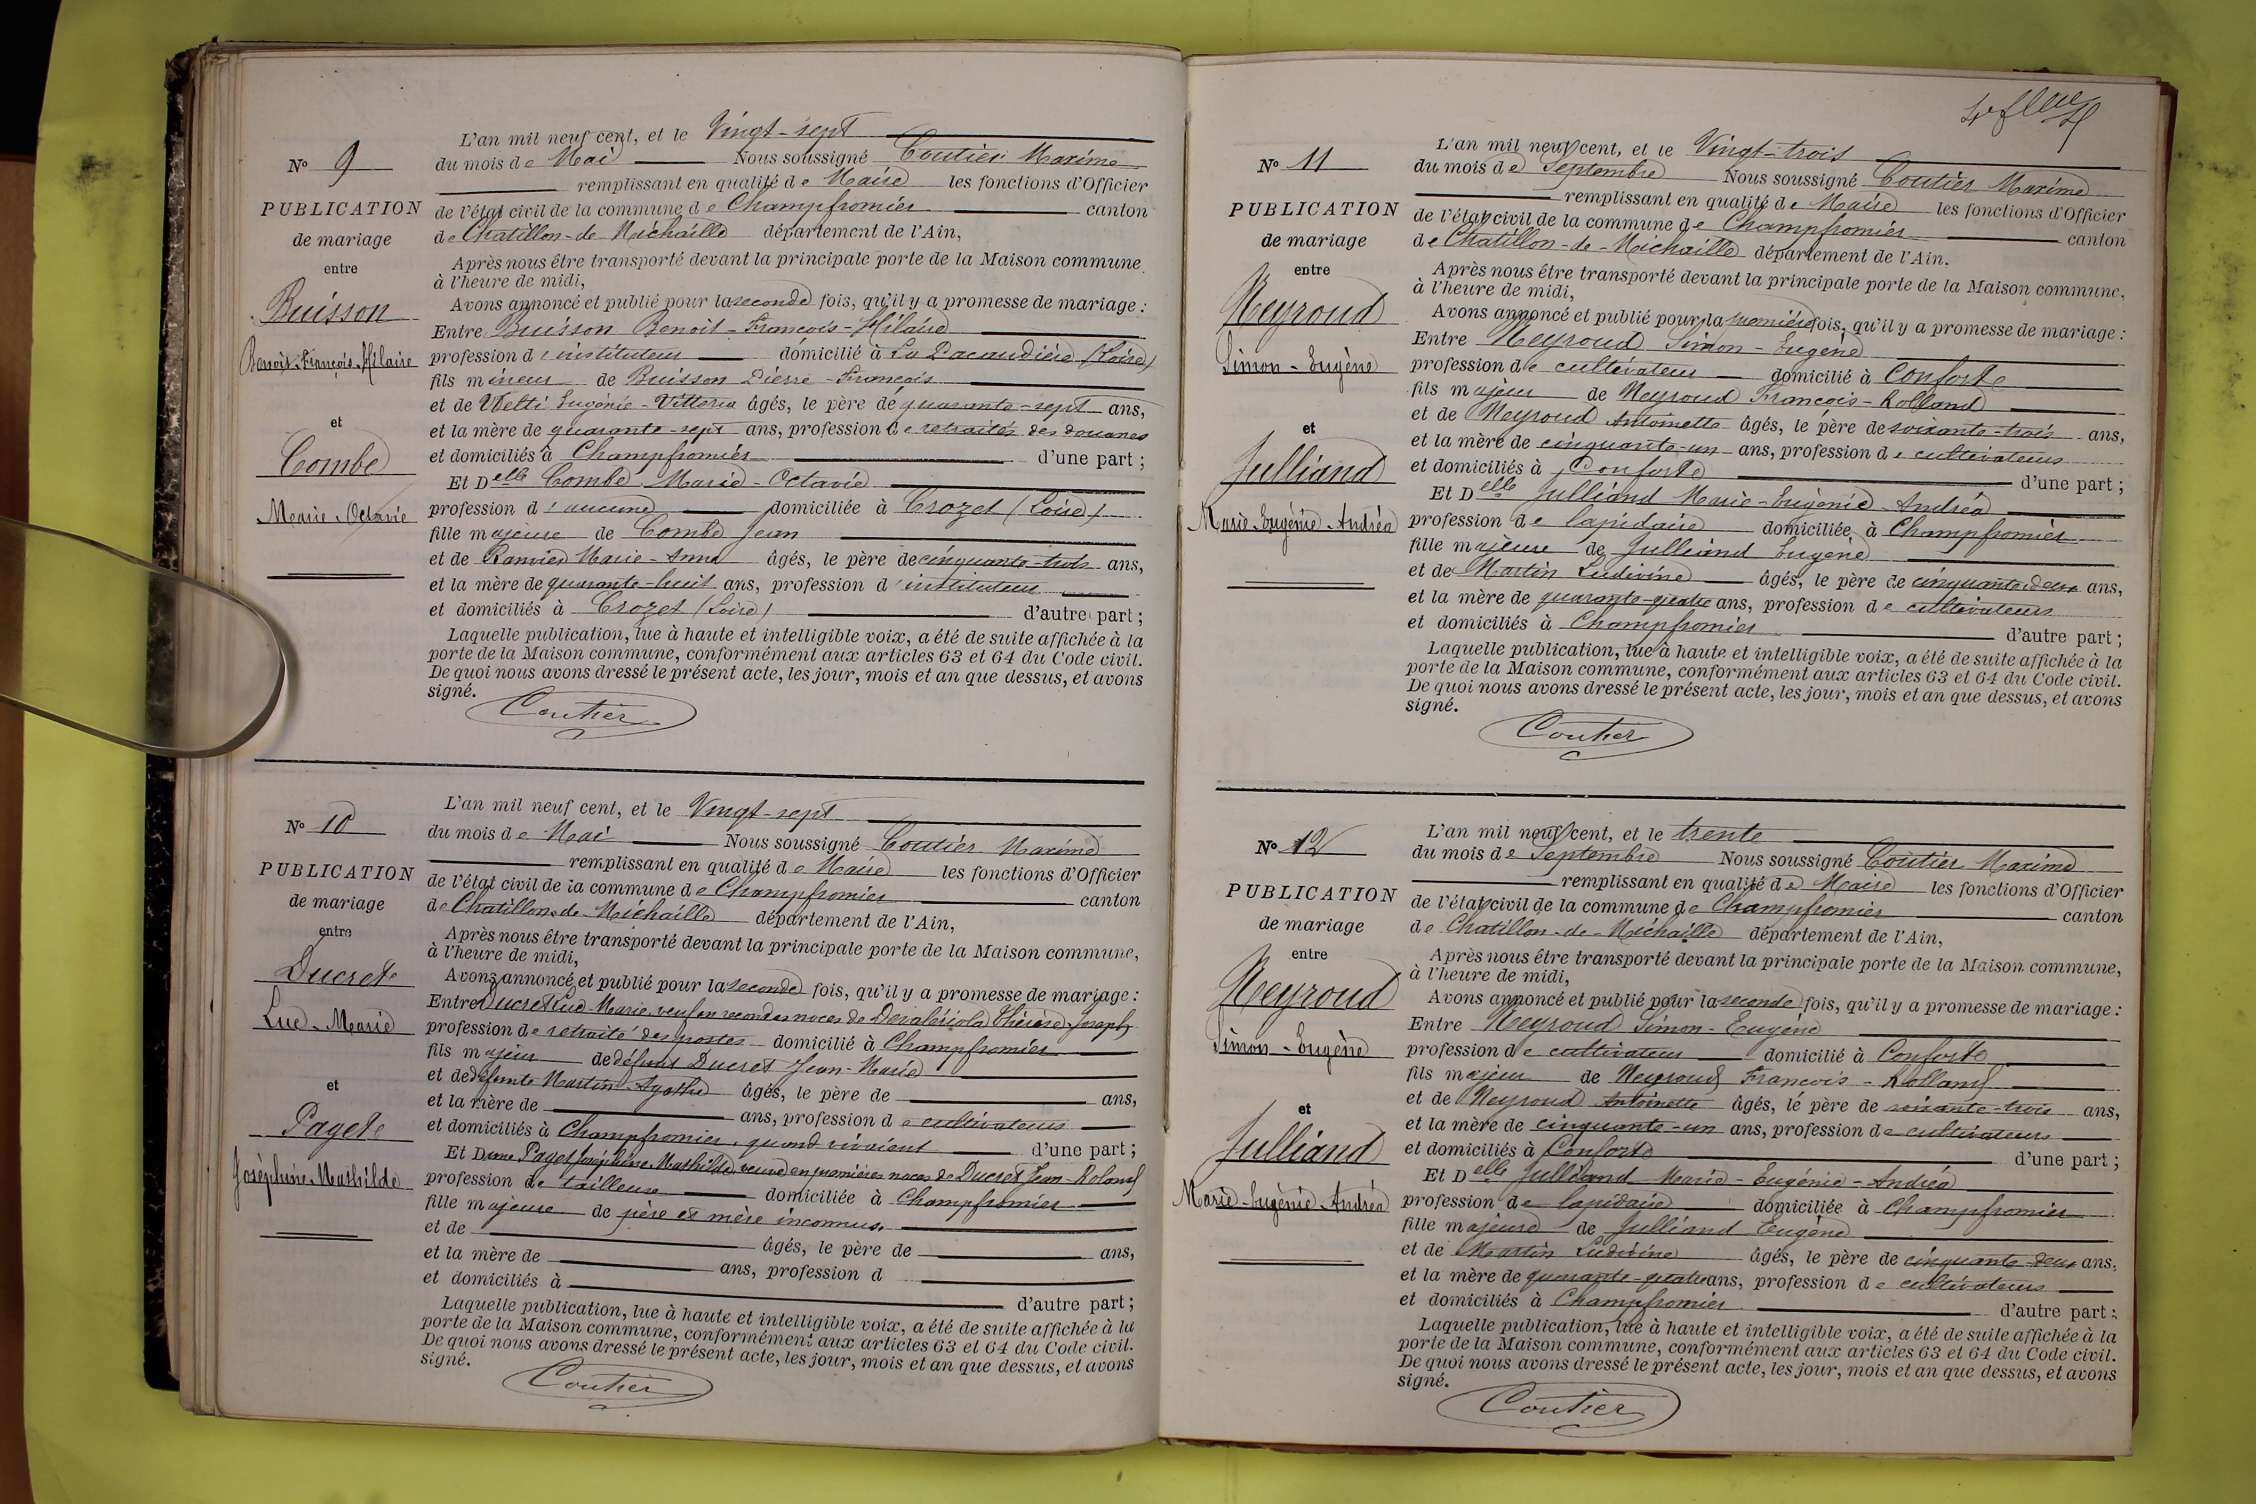 N° 9
PUBLICATION
de mariage
entre
Buisson
Benoit-François-Hilaire
et
Combe
Marie-Octavie
L'an mil neuf cent, et le Vingt-sept
du mois de Mai Nous soussigné Coutier Maxime
remplissant en qualité de Maire les fonctions d'Officier
de l'état civil de la commune de Champfromier canton
de Chatillon-de-Michaille département de l'Ain,
Après nous être transporté devant la principale porte de la Maison commune
à l'heure de midi,
Avons annoncé et publié pour la seconde fois, qu'il y a promesse de mariage :
Entre Buisson Benoit-François-Hilaire
profession d'instituteur domicilié à La Pacaudière (Loire)
fils mineur de Buisson Pierre-François
et de Welti Eugénie-Vittoria âgés, le père de quarante-sept ans,
et la mère de quarante-sept ans, profession de retraités des douanes
et domiciliés à Champfromier d'une part ;
Et Delle Combe Marie-Octavie
profession d'aucune domiciliée à Crozet (Loire)
fille majeure de Combe Jean
et de Ramier Marie-Anna âgés, le père de cinquante-trois ans,
et la mère de quarante-huit ans, profession d'instituteur
et domiciliés à Crozet (Loire) d'autre part ;
Laquelle publication, lue à haute et intelligible voix, a été de suite affichée à la
porte de la Maison commune, conformément aux articles 63 et 64 du Code civil.
De quoi nous avons dressé le présent acte, les jour, mois et an que dessus, et avons
signé.
Coutier
N° 10
PUBLICATION
de mariage
entre
Ducret
Luc-Marie
et
Paget
Joséphine-Mathilde
L'an mil neuf cent, et le Vingt-sept
du mois de Mai Nous soussigné Coutier Maxime
remplissant en qualité de Maire les fonctions d'Officier
de l'état civil de la commune de Champfromier canton
de Chatillon-de-Michaille département de l'Ain,
Après nous être transporté devant la principale porte de la Maison commune,
à l'heure de midi,
Avons annoncé et publié pour la seconde fois, qu'il y a promesse de mariage :
Entre Ducret Luc-Marie, veuf en secondes noces de Devalériola Thérèse-Joseph,
profession de retraité des postes domicilié à Champfromier
fils majeur de défunt Ducret Jean-Marie
et de défunte Martin Agathe âgés, le père de ans,
et la mère de ans, profession de cultivateurs
et domiciliés à Champfromier, quand vivaient d'une part ;
Et Dame Paget Joséphine Mathilde, veuve en premières noces de Ducret Jean-Roland
profession de tailleuse domiciliée à Champfromier
fille majeure de père et mère inconnus,
et de âgés, le père de ans,
et la mère de ans, profession d
et domiciliés à d'autre part ;
Laquelle publication, lue à haute et intelligible voix, a été de suite affichée à la
porte de la Maison commune, conformément aux articles 63 et 64 du Code civil.
De quoi nous avons dressé le présent acte, les jour, mois et an que dessus, et avons
signé.
Coutier
N° 11
PUBLICATION
de mariage
entre
Neyroud
Simon-Eugène
et
Julliand
Marie-Eugénie-Andréa
L'an mil neuf cent, et le Vingt-trois
du mois de Septembre Nous soussigné Coutier Maxime
remplissant en qualité de Maire les fonctions d'Officier
de l'état civil de la commune de Champfromier canton
de Chatillon-de-Michaille département de l'Ain.
Après nous être transporté devant la principale porte de la Maison commune,
à l'heure de midi,
Avons annoncé et publié pour la première fois, qu'il y a promesse de mariage :
Entre Neyroud Simon-Eugène
profession de cultivateur domicilié à Confort
fils majeur de Neyroud François-Rolland
et de Neyroud Antoinette âgés, le père de soixante-trois ans,
et la mère de cinquante-un ans, profession de cultivateurs
et domiciliés à Confort d'une part ;
Et Delle Julliand Marie-Eugénie-Andréa
profession de lapidaire domiciliée à Champfromier
fille majeure de Julliand Eugène
et de Martin Ludivine âgés, le père de cinquante-deux ans,
et la mère de quarante-quatre ans, profession de cultivateurs
et domiciliés à Champfromier d'autre part ;
Laquelle publication, lue à haute et intelligible voix, a été de suite affichée à la
porte de la Maison commune, conformément aux articles 63 et 64 du Code civil.
De quoi nous avons dressé le présent acte, les jour, mois et an que dessus, et avons
signé.
Coutier
N° 12
PUBLICATION
de mariage
entre
Neyroud
Simon-Eugène
et
Julliand
Marie-Eugénie-Andréa
L'an mil neuf cent, et le trente
du mois de Septembre Nous soussigné Coutier Maxime
remplissant en qualité de Maire les fonctions d'Officier
de l'état civil de la commune de Champfromier canton
de Chatillon-de-Michaille département de l'Ain,
Après nous être transporté devant la principale porte de la Maison commune,
à l'heure de midi,
Avons annoncé et publié pour la seconde fois, qu'il y a promesse de mariage :
Entre Neyroud Simon-Eugène
profession de cultivateur domicilié à Confort
fils majeur de Neyroud François-Rolland
et de Neyroud Antoinette âgés, le père de soixante-trois ans,
et la mère de cinquante-un ans, profession de cultivateurs
et domiciliés à Confort d'une part ;
Et Delle Julliand Marie-Eugénie-Andréa
profession de lapidaire domiciliée à Champfromier
fille majeure de Julliand Eugène
et de Martin Ludivine âgés, le père de cinquante-deux ans,
et la mère de quarante-quatre ans, profession de cultivateurs
et domiciliés à Champfromier d'autre part ;
Laquelle publication, lue à haute et intelligible voix, a été de suite affichée à la
porte de la Maison commune, conformément aux articles 63 et 64 du Code civil.
De quoi nous avons dressé le présent acte, les jour, mois et an que dessus, et avons
signé.
Coutier